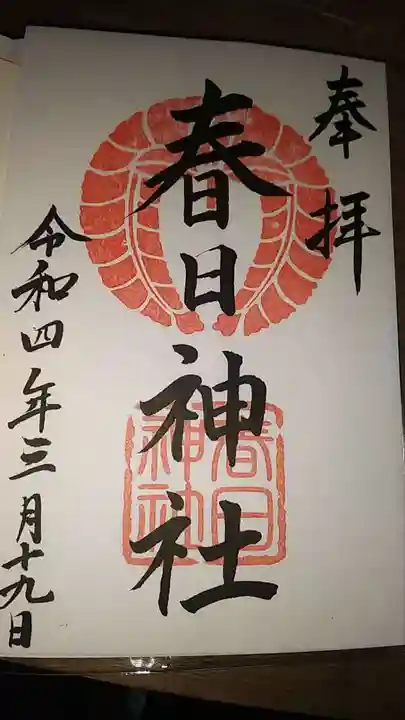 奉拝
春日神社
春日神社
令和四年三月十九日